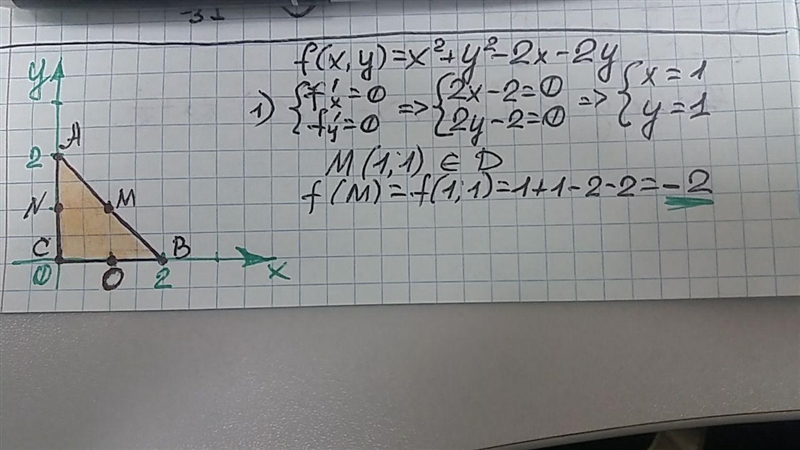 -31
f(x, y) = x² + y² - 2x - 2y
1) { f'x = 0 => { 2x - 2 = 0 => { x = 1
{ f'y = 0 { 2y - 2 = 0 { y = 1
M(1; 1) ∈ D
f(M) = f(1; 1) = 1 + 1 - 2 - 2 = -2
y
2 A
N M
C B
0 O 2 x